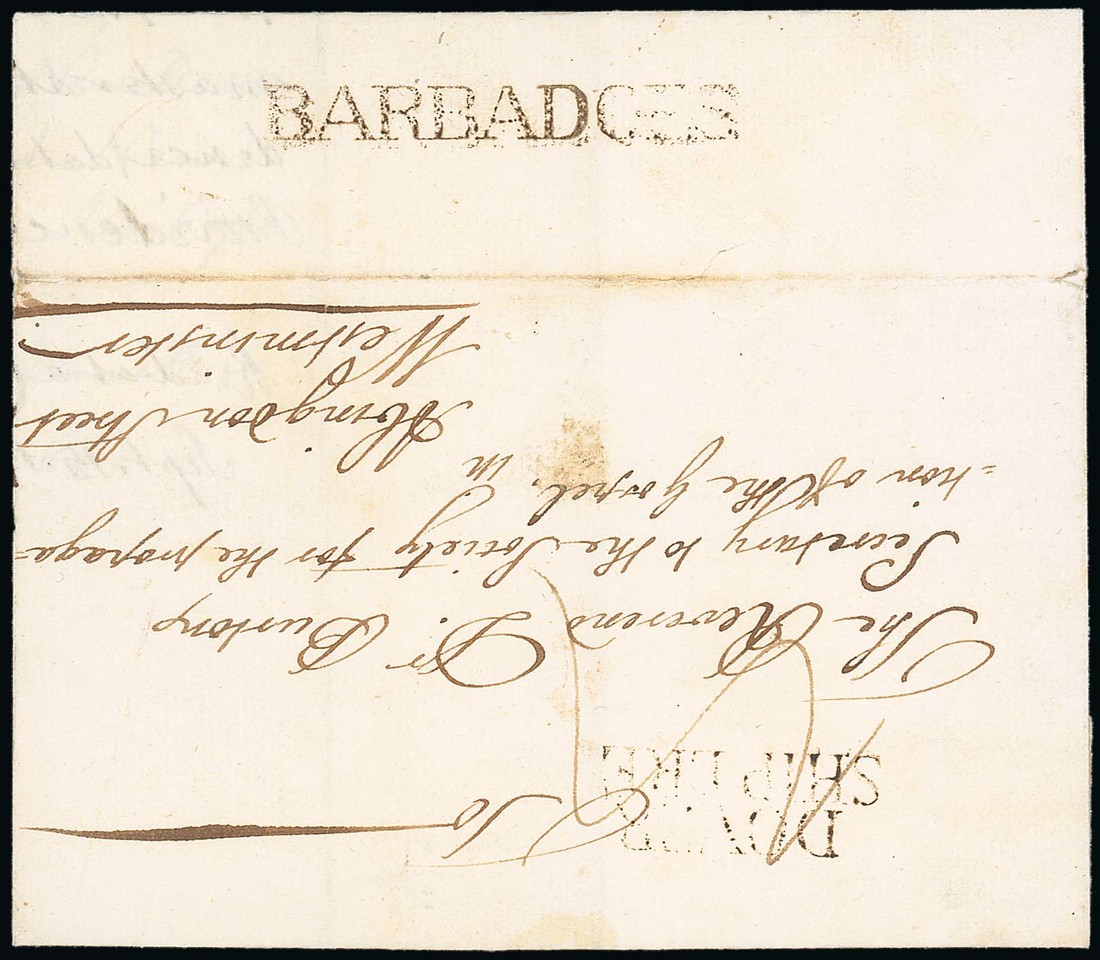 BARBADOES
DOVER
SHIP LRE
To
The Reverend Dr. Burton
Secretary to the Society for the propaga=
=tion of the Gospel, in
Abingdon Street
Westminster